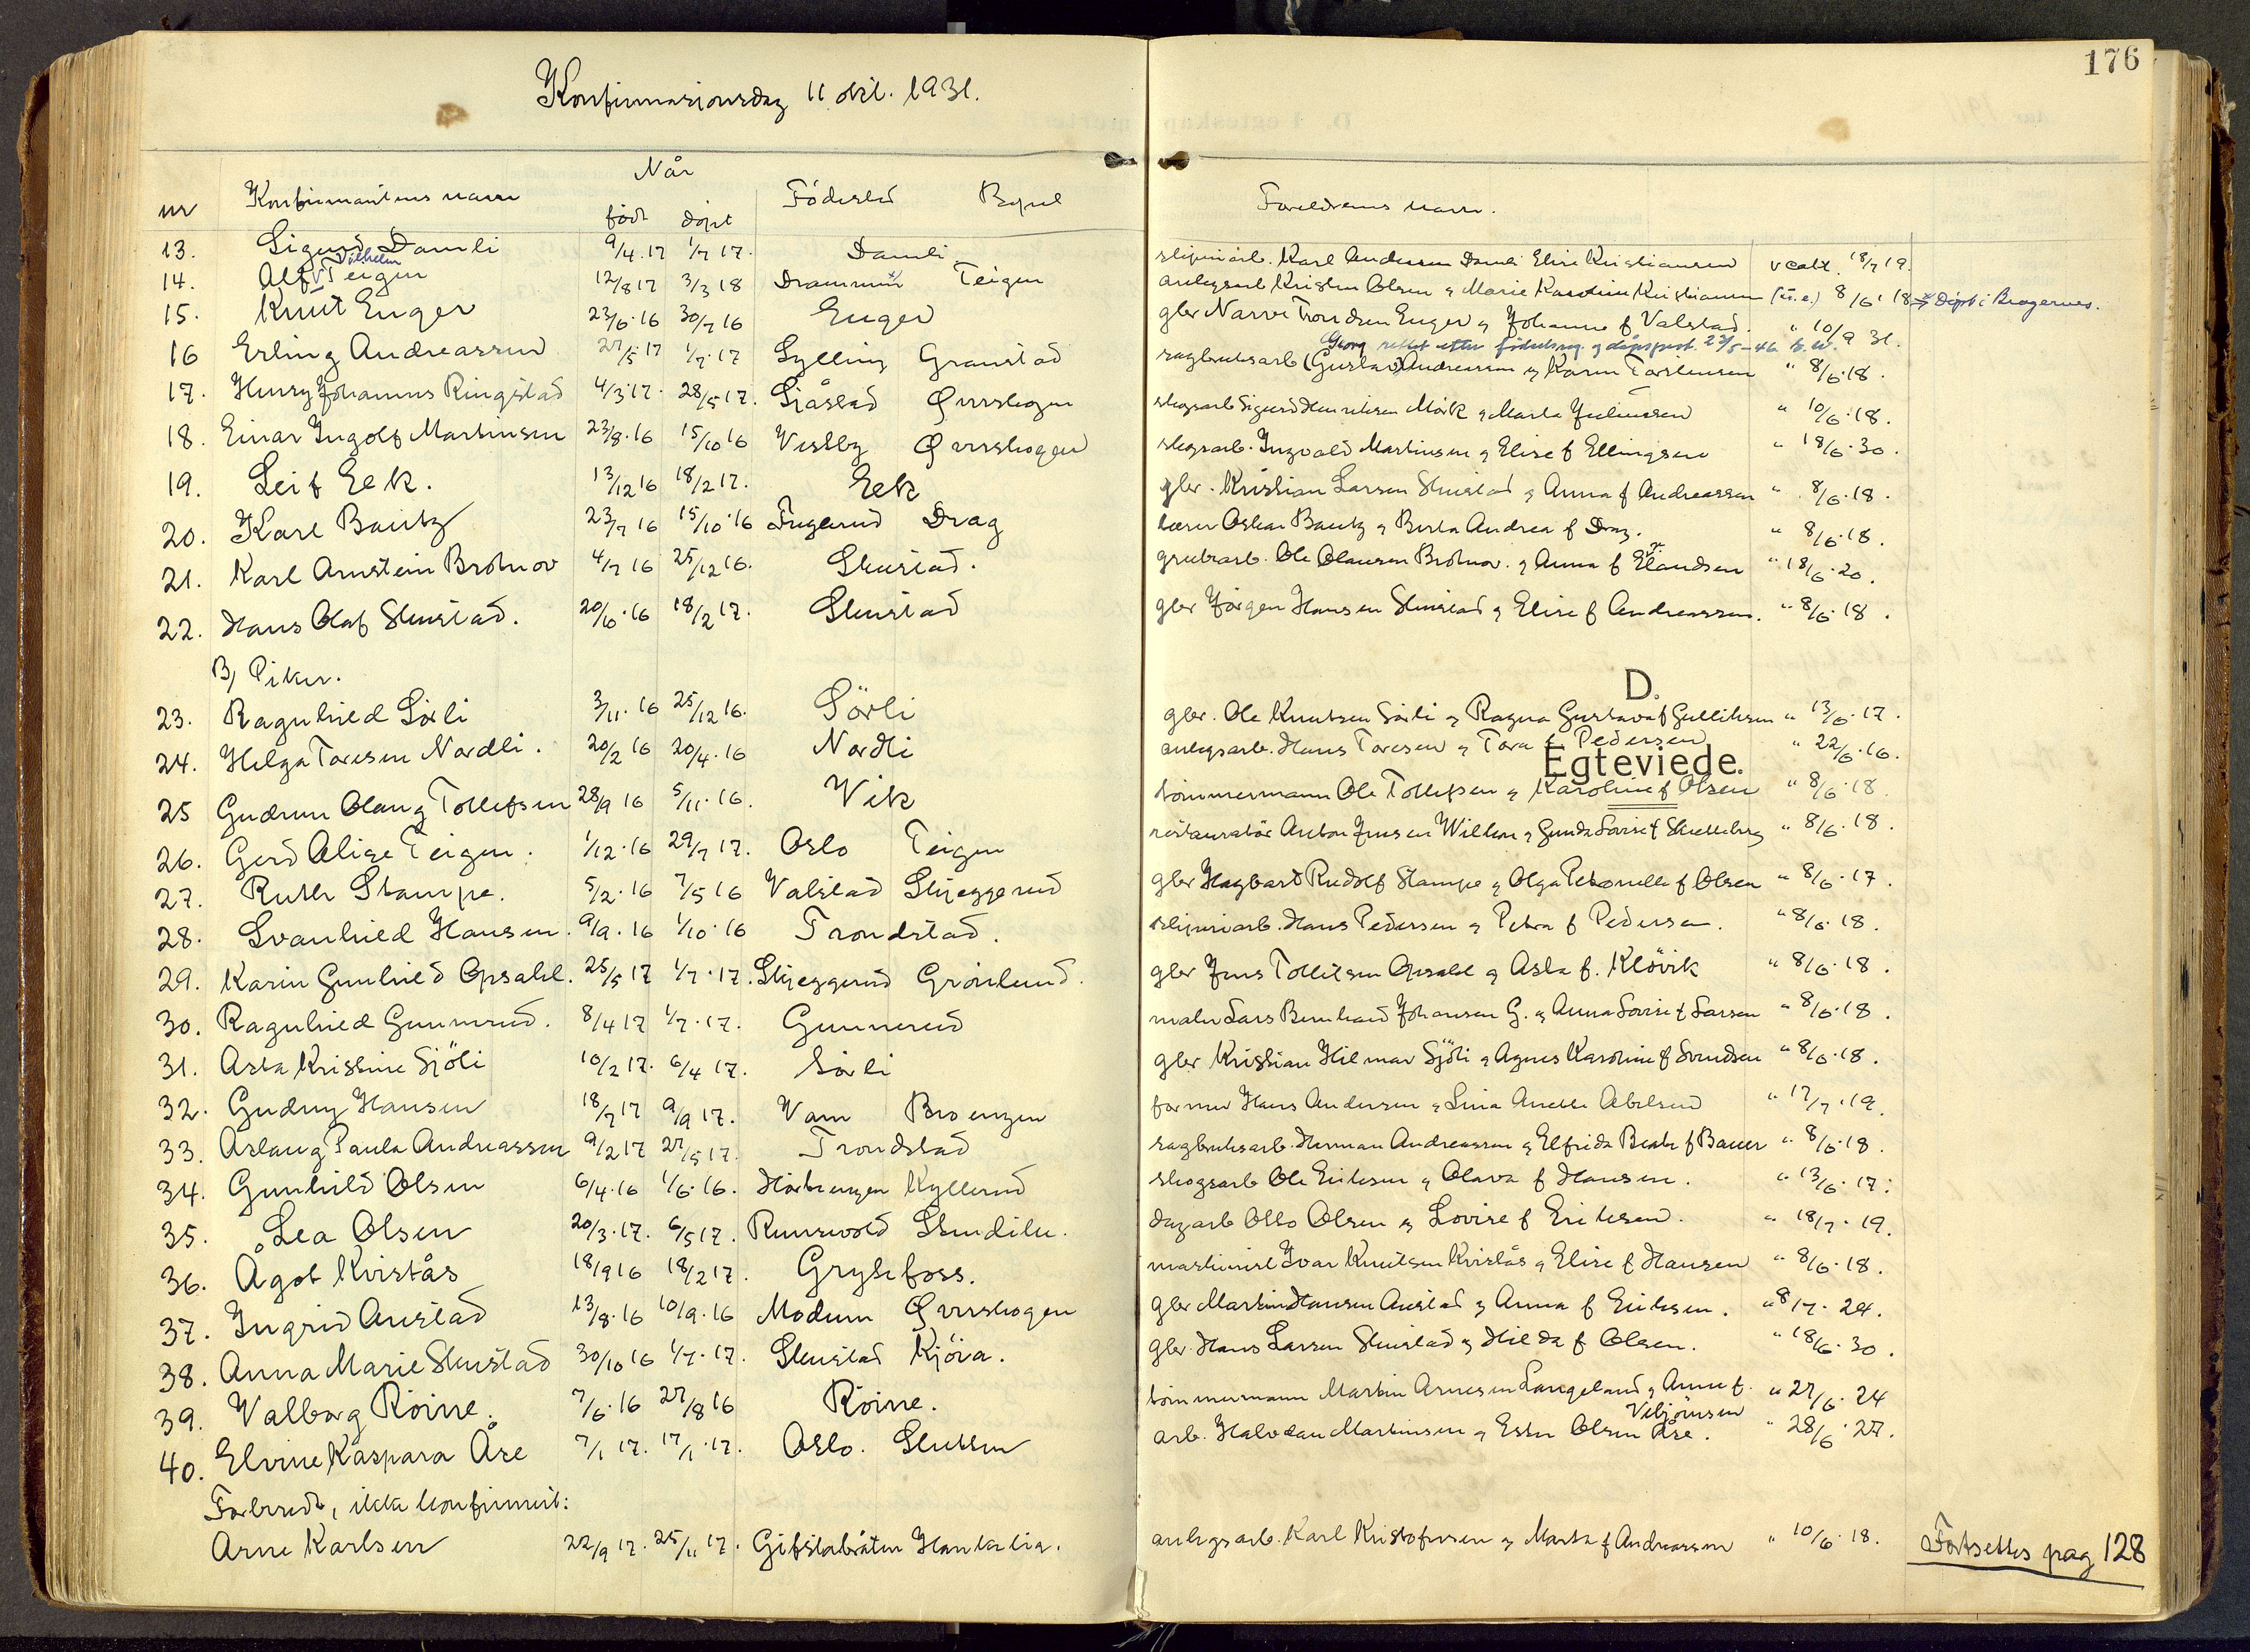 176
Konfirmasjonsdag 11 okt. 1931.
nr Konfirmantens navn Når født döpt Födested Bopel Foreldrenes navn.
13. Sigurd Damli 9/4.17 1/7 17. Damli sliperiarb. Karl Andersen Damli Elise Kristiansen vcalt. 18/7 19.
14. Alf Vilhelm Teigen 12/8 17 3/3 18 Drammen x Teigen anlegsarb Kristen Olsen & Marie Karoline Kristiansen (u.e.) 8/6. 18 x Döpt i Bragernes.
15. Knut Enger 23/6.16 30/7 16 Enger gbr Narve Trondsen Enger & Johanne f Valstad. " 10/9 31.
Georg rettet etter födselsreg. & dåpsprot. 23/5-46
16 Erling Andreassen 27/5.17 1/7.17 Sylling Granstad sagbruksarb (Gustav) Andreassen & Karen Torstensen " 8/6.18.
17. Henry Johannes Ringstad 4/3.17. 28/5 17. Sjåstad Øvrskogen skogsarb Sigurd Henriksen Mörk & Marta Juliussen " 10/6.18.
18. Einar Ingolf Martinsen 23/8.16 15/10 16 Vestby Øvrskogen skogsarb. Ingvald Martinsen & Elise f Ellingsen " 18/6.30.
19. Leif Eek. 13/12 16 18/2 17. Eek gbr. Kristian Larsen Skustad & Anna f Andreassen " 8/6.18.
20. Karl Bautz 23/7 16 15/10.16 Fugerud Drag lærer Oskar Bautz & Berta Andrea f Drag. " 8/6.18.
21. Karl Arnstein Brohnov 4/7 16 25/12 16. Skustad. grubearb. Ole Olausen Brohnov. & Anna f Elandsen " 18/6.20.
22. Hans Olaf Skustad. 20/10.16 18/2 17. Skustad gbr Jörgen Hansen Skustad & Elise f Andreassen. " 8/6.18.
B) Piker.
D.
Egteviede.
23. Ragnhild Sörli 3/11.16 25/12 16. Sörli gbr. Ole Knutsen Sörli & Ragna Gustava f Gulliksen " 13/6.17.
24. Helga Toresen Nordli. 20/2 16 20/4.16 Nordli anlegsarb. Hans Toresen & Tora f Pedersen " 22/6.16.
25 Gudrun Olaug Tollefsen 28/9 16 5/11.16. Vik tömmermann Ole Tollefsen & Karoline f Olsen " 8/6.18.
26. Gerd Alise Teigen. 1/12.16 29/7 17. Oslo Teigen restauratör Anton Jensen Wilton & Gunda Lovise f " 8/6.18.
27. Ruth Stampe. 5/2.16 7/5 16 Valstad Skjeggerud gbr Hagbart Rudolf Stampe & Olga Petronelle f Olsen " 8/6.17.
28. Svanhild Hansen. 9/9.16 1/10.16 Trondstad. sliperiarb. Hans Pedersen & Petra f Pedersen. " 8/6.18.
29. Karin Gunhild Opsahl. 25/5 17 1/7.17. Skjeggerud Grönlund. gbr Jens Tollefsen Opsahl & Asta f. Klövik " 8/6.18.
30. Ragnhild Gunnerud. 8/4 17 1/7.17. Gunnerud maler Lars Bernhard Johansen G. & Anna Lovise f Larsen " 8/6.18.
31. Asta Kristine Sjöli 10/2 17. 6/4 17. Sörli gbr Kristian Hilmar Sjöli & Agnes Karoline f Svendsen " 8/6.18.
32. Gudny Hansen 18/7 17 9/9 17. Vam Broengen former Hans Andersen & Lina Anette Abelsen " 17/7.19.
33. Aslaug Paula Andreassen 9/2 17 27/5 17. Trondstad sagbruksarb. Herman Andreassen & Elfrida Beate f Bauer " 8/6.18.
34. Gunhild Olsen 6/4.16 1/6.16. Hörtengen Kyllerud skogsarb Ole Eriksen & Olava f Hansen. " 13/6.17.
35. Lea Olsen 20/3.17. 6/5 17. Runsvold Skredilu. dagarb Otto Olsen & Lovise f Eriksen. " 18/7.19.
36. Ågot Kvistås 18/9 16 18/2 17. Grytefoss. maskinist Ivar Knutsen Kvistås & Elise f Hansen " 8/6.18.
37. Ingrid Austad 13/8.16 10/9.16 Modum Øvrskogen gbr Martin Hansen Austad & Anna f Eriksen. " 8/7.24.
38. Anna Marie Skustad 30/10 16 1/7.17. Skustad Kjöra. gbr. Hans Larsen Skustad & Hilda f Olsen. " 18/6.30.
39. Valborg Röine. 7/6.16 27/8 16 Röine. tömmermann Martin Arnesen Langeland & Anne f. Vebjörnsen " 27/6.24
40. Elvine Kaspara Åse 7/1 17. 17/1.17. Oslo. Sletten arb. Halvdan Martinsen & Ester Olsen Åse. " 28/6.27.
Forberedt, ikke konfirmert:
Arne Karlsen 22/9 17. 25/11 17. Gifstabråten Hankelia. anlegsarb. Karl Kristofersen & Marta f Andreassen " 10/6.18.
Fortsettes pag 128